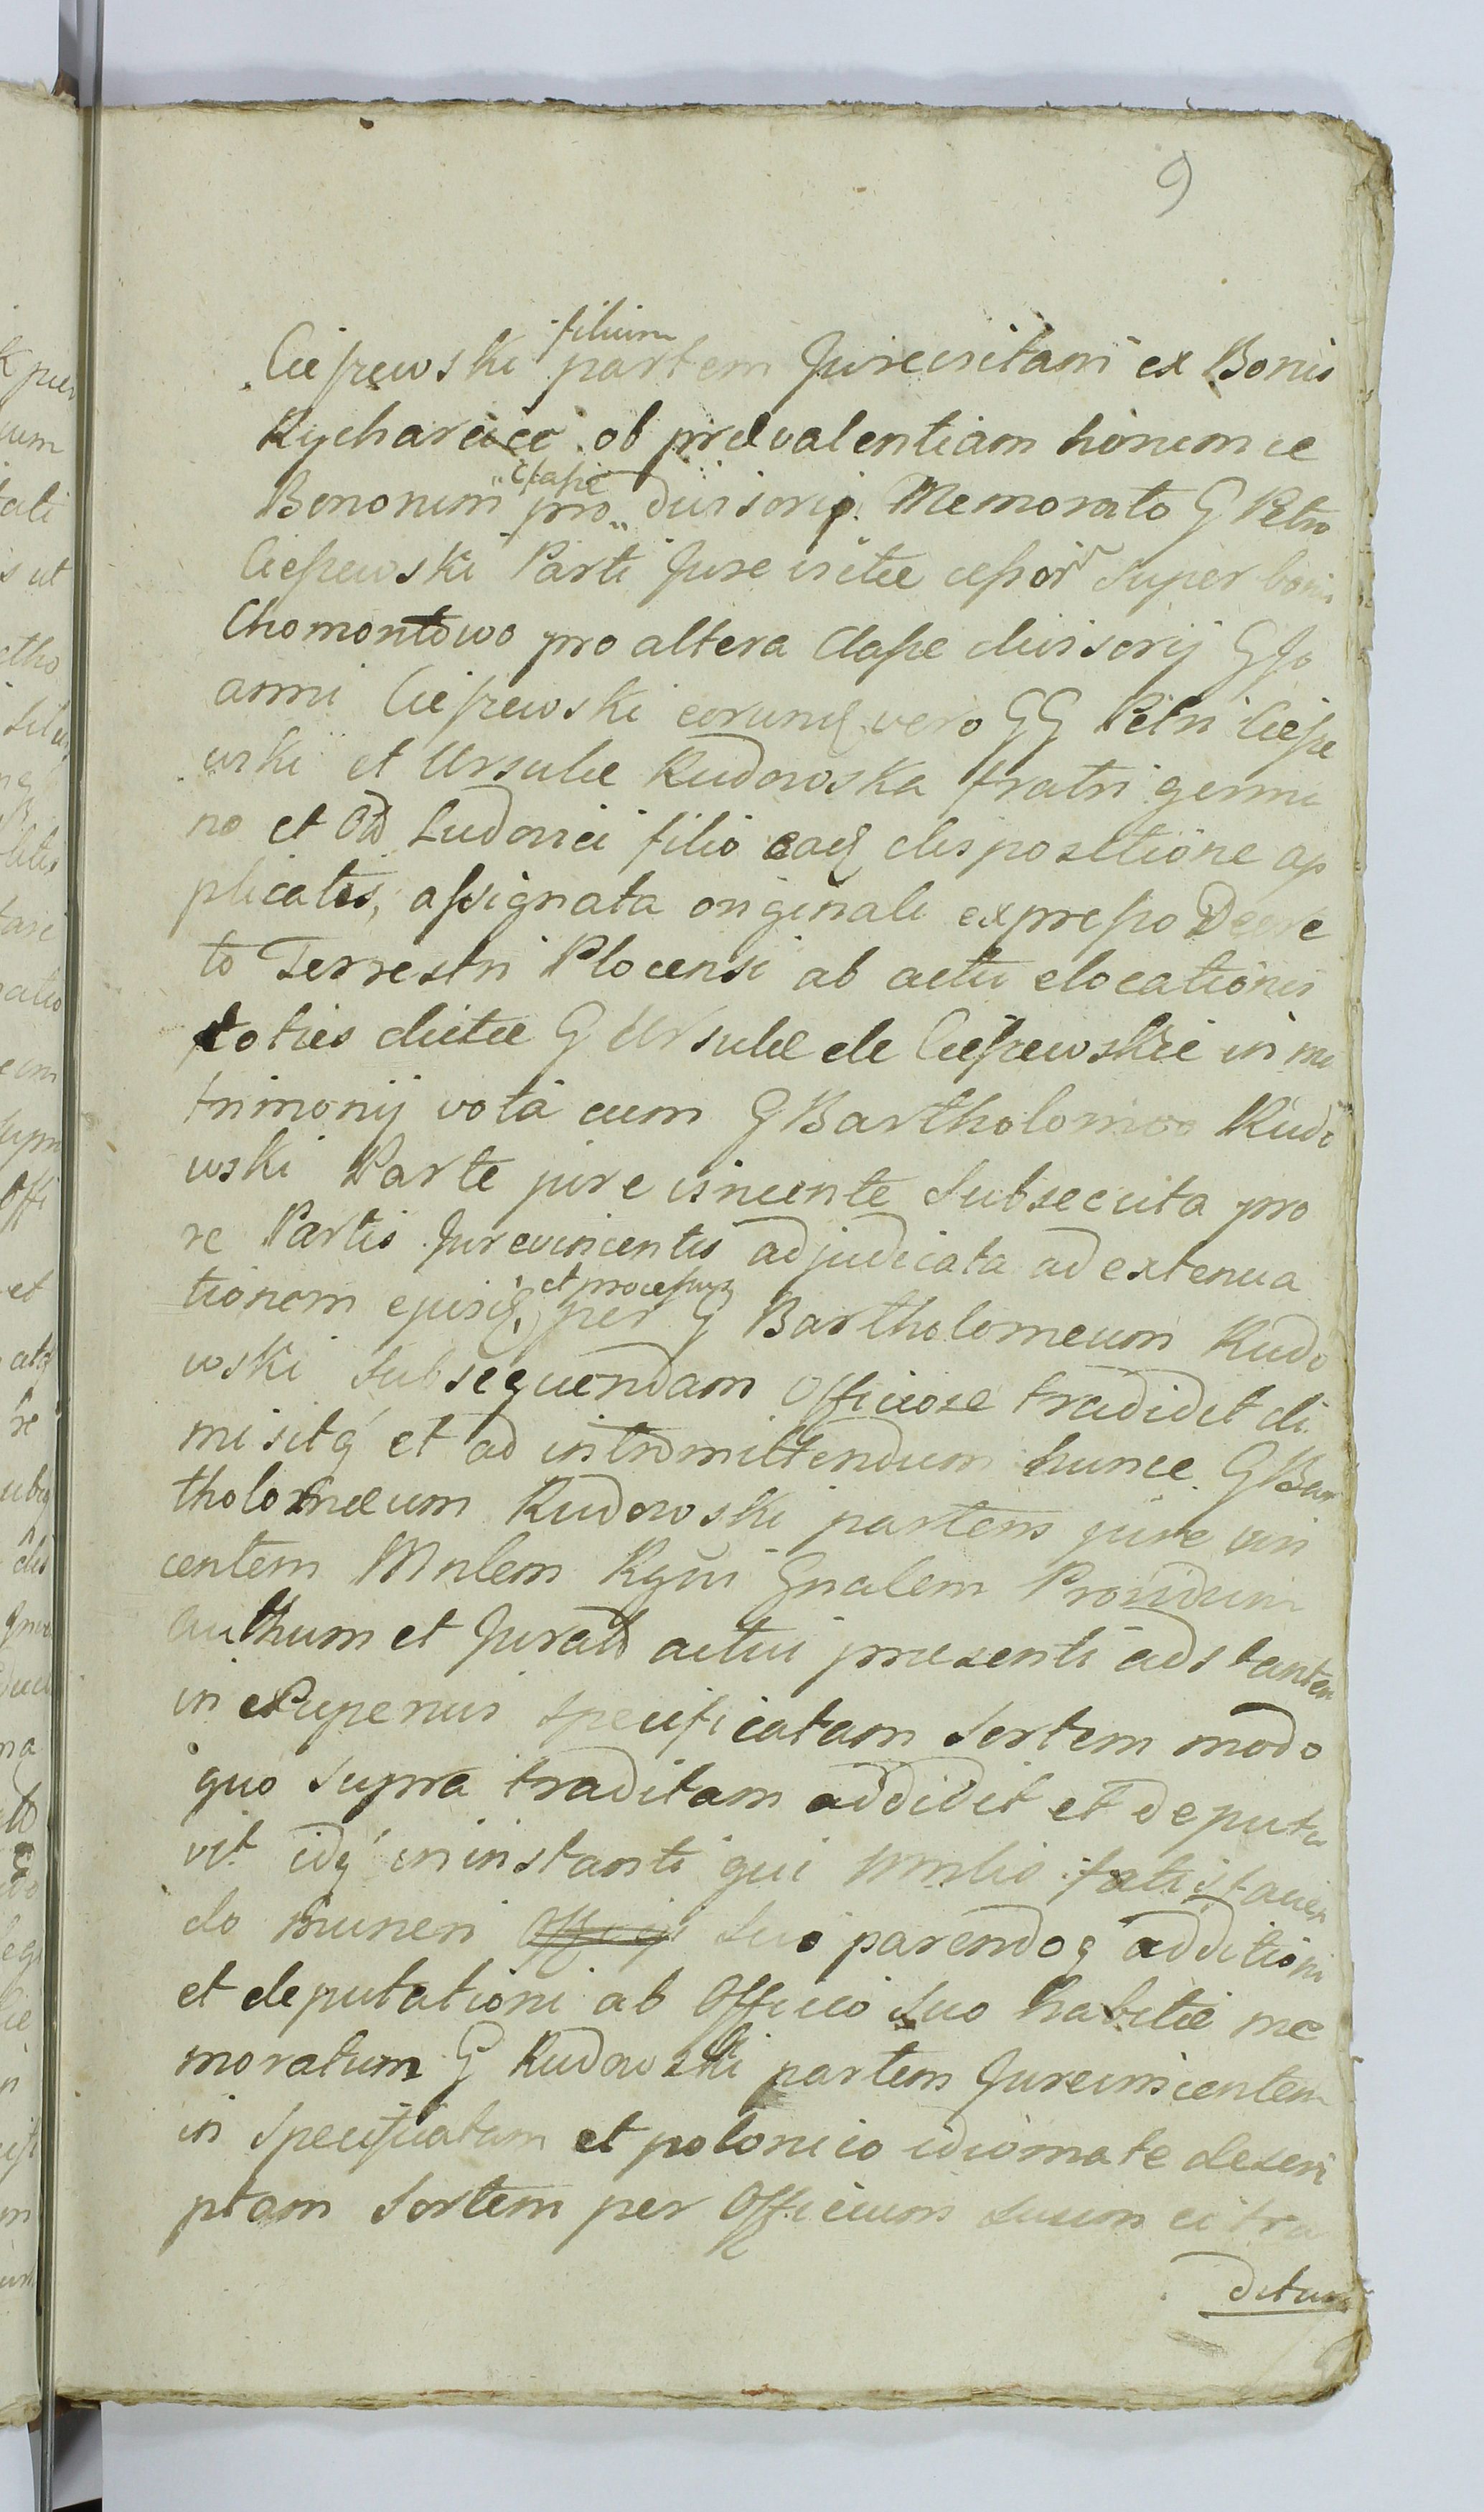 9
filium
Ciessewski partem Jurevictam ex Bonis
Rycharcice ob prævalentiam horumce
Classe
Bonorum pro divisorij Memorato G Petro
Ciessewski Parti Jure victæ cessor super bonis
Chomontowo pro altera Classe divisorij G Jo
anni Ciessewski eorundq vero GG Petri Ciesse
wski et Ursulæ Rudowska fratri germa
no et Ludovici filio eadq dispositione ap
plicatis, assignata originali expresso Decre
to Terrestri Plocensi ab actu elocationis
toties dictæ G Ursulæ de Ciessewskie in ma
trimonij vota cum G Bartholomeo Rudo
wski Parte jure vincente subsecuta pro
re Partis Jurevincentis adjudicata ad extenua
et processus
tionem ejusdq per G Bartholomeum Rudo
wski subsequendam officiose tradidit di
misitq et ad intromittendum hunce G Bar
tholomæum Rudowski partem jure vin
centem Mnlem Rgni Gnalem Providum
authum et Jurat actui præsenti adstantem
in exsuperius specificatam sortem modo
quo supra traditam addidit et deputa
vit idq in instanti qui mnlis satisfacien
do muneri suo parendoq additioni
et deputationi ab Officio suo habitæ me
moratum G Rudowski partem Jurevincentem
in specificatam et polonico idiomate descri
ptam sortem per Officium suum ei tra
ditam